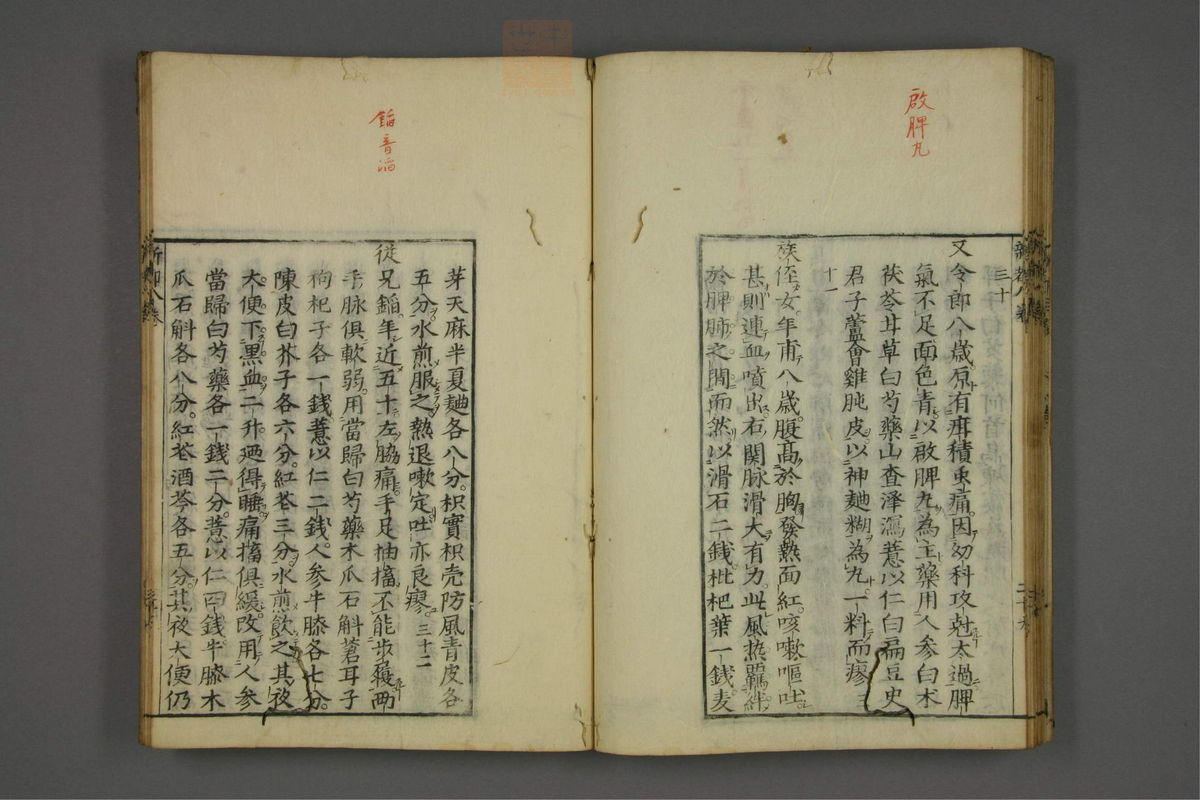 啟脾丸
三十
又令郎八歲原有疳積東痛因幼科攻尅太過脾
氣不足面色青以啟脾丸為主藥用人參白朮
茯苓甘草白芍藥山查澤瀉薏以仁白扁豆史
君子蘆會雞肫皮以神麯糊為丸一料而瘳三
十一
族侄女年甫八歲腹髙於胸發熱面紅咳嗽嘔吐
甚則連血噴出右関脉滑大有力此風热羈絆
於脾肺之間而然以滑石二錢枇杷葉一錢麦
芽天麻半夏麯各八分枳實枳壳防風青皮各
五分水煎服之熱退嗽定吐亦良瘳三十二
從兄謟年近五十左脇痛手足抽搐不能步履両
手脉俱軟弱用當歸白芍藥木瓜石斛蒼耳子
枸杞子各一錢薏以仁二錢人參牛膝各七分
陳皮白芥子各六分紅花三分水煎飲之其夜
大便下黒血二升廼得睡痛搐俱緩改用人參
當歸白芍藥各一錢二分薏以仁四錢牛膝木
瓜石斛各八分紅花酒芩各五分其夜大便仍
音滔